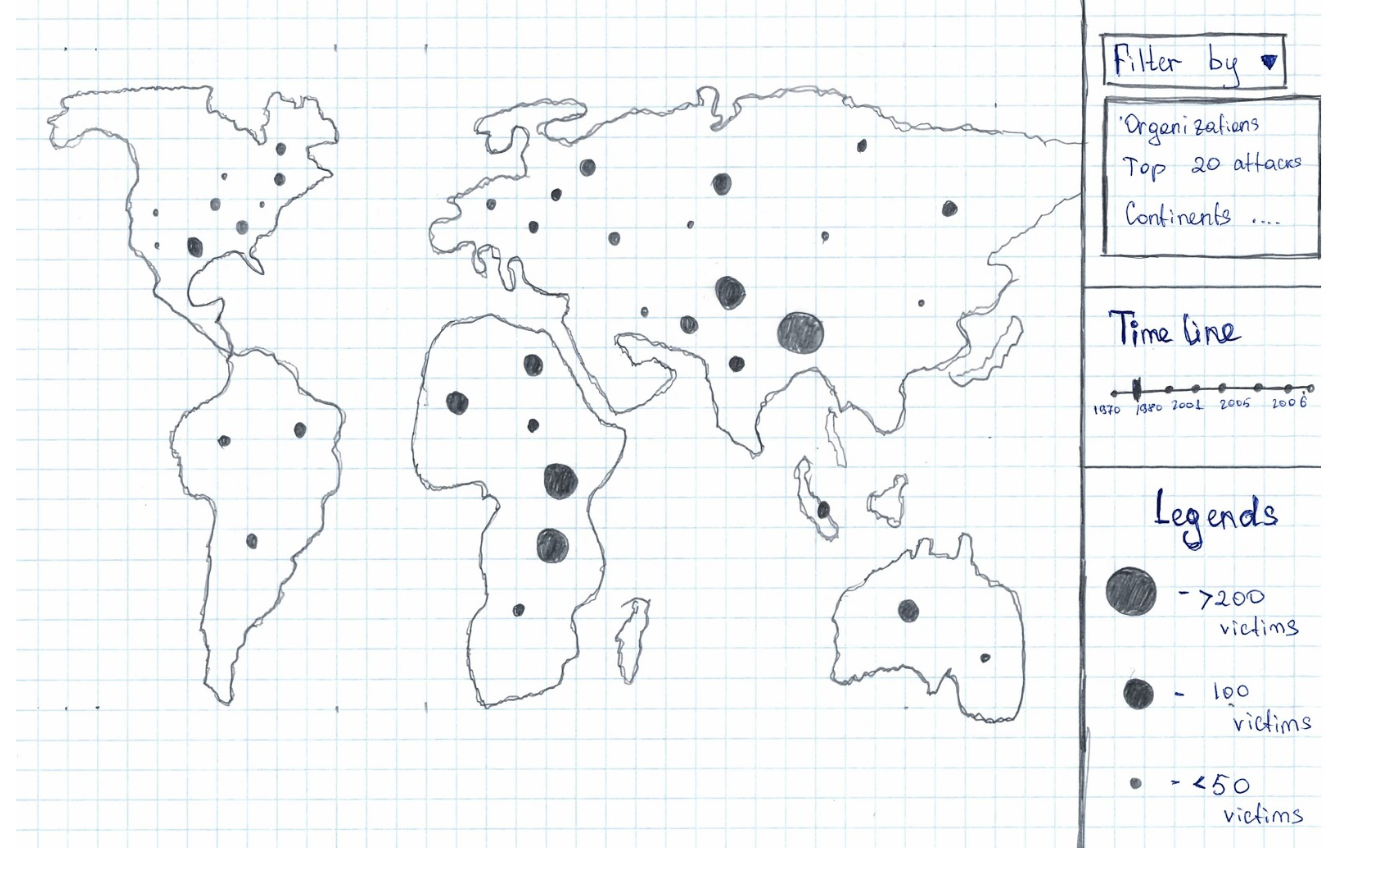 Filter by
Organizations
Top 20 attacks
Continents ....
Time line
1970 1980 2001 2005 2006
Legends
- >200
victims
- 100
victims
- <50
victims